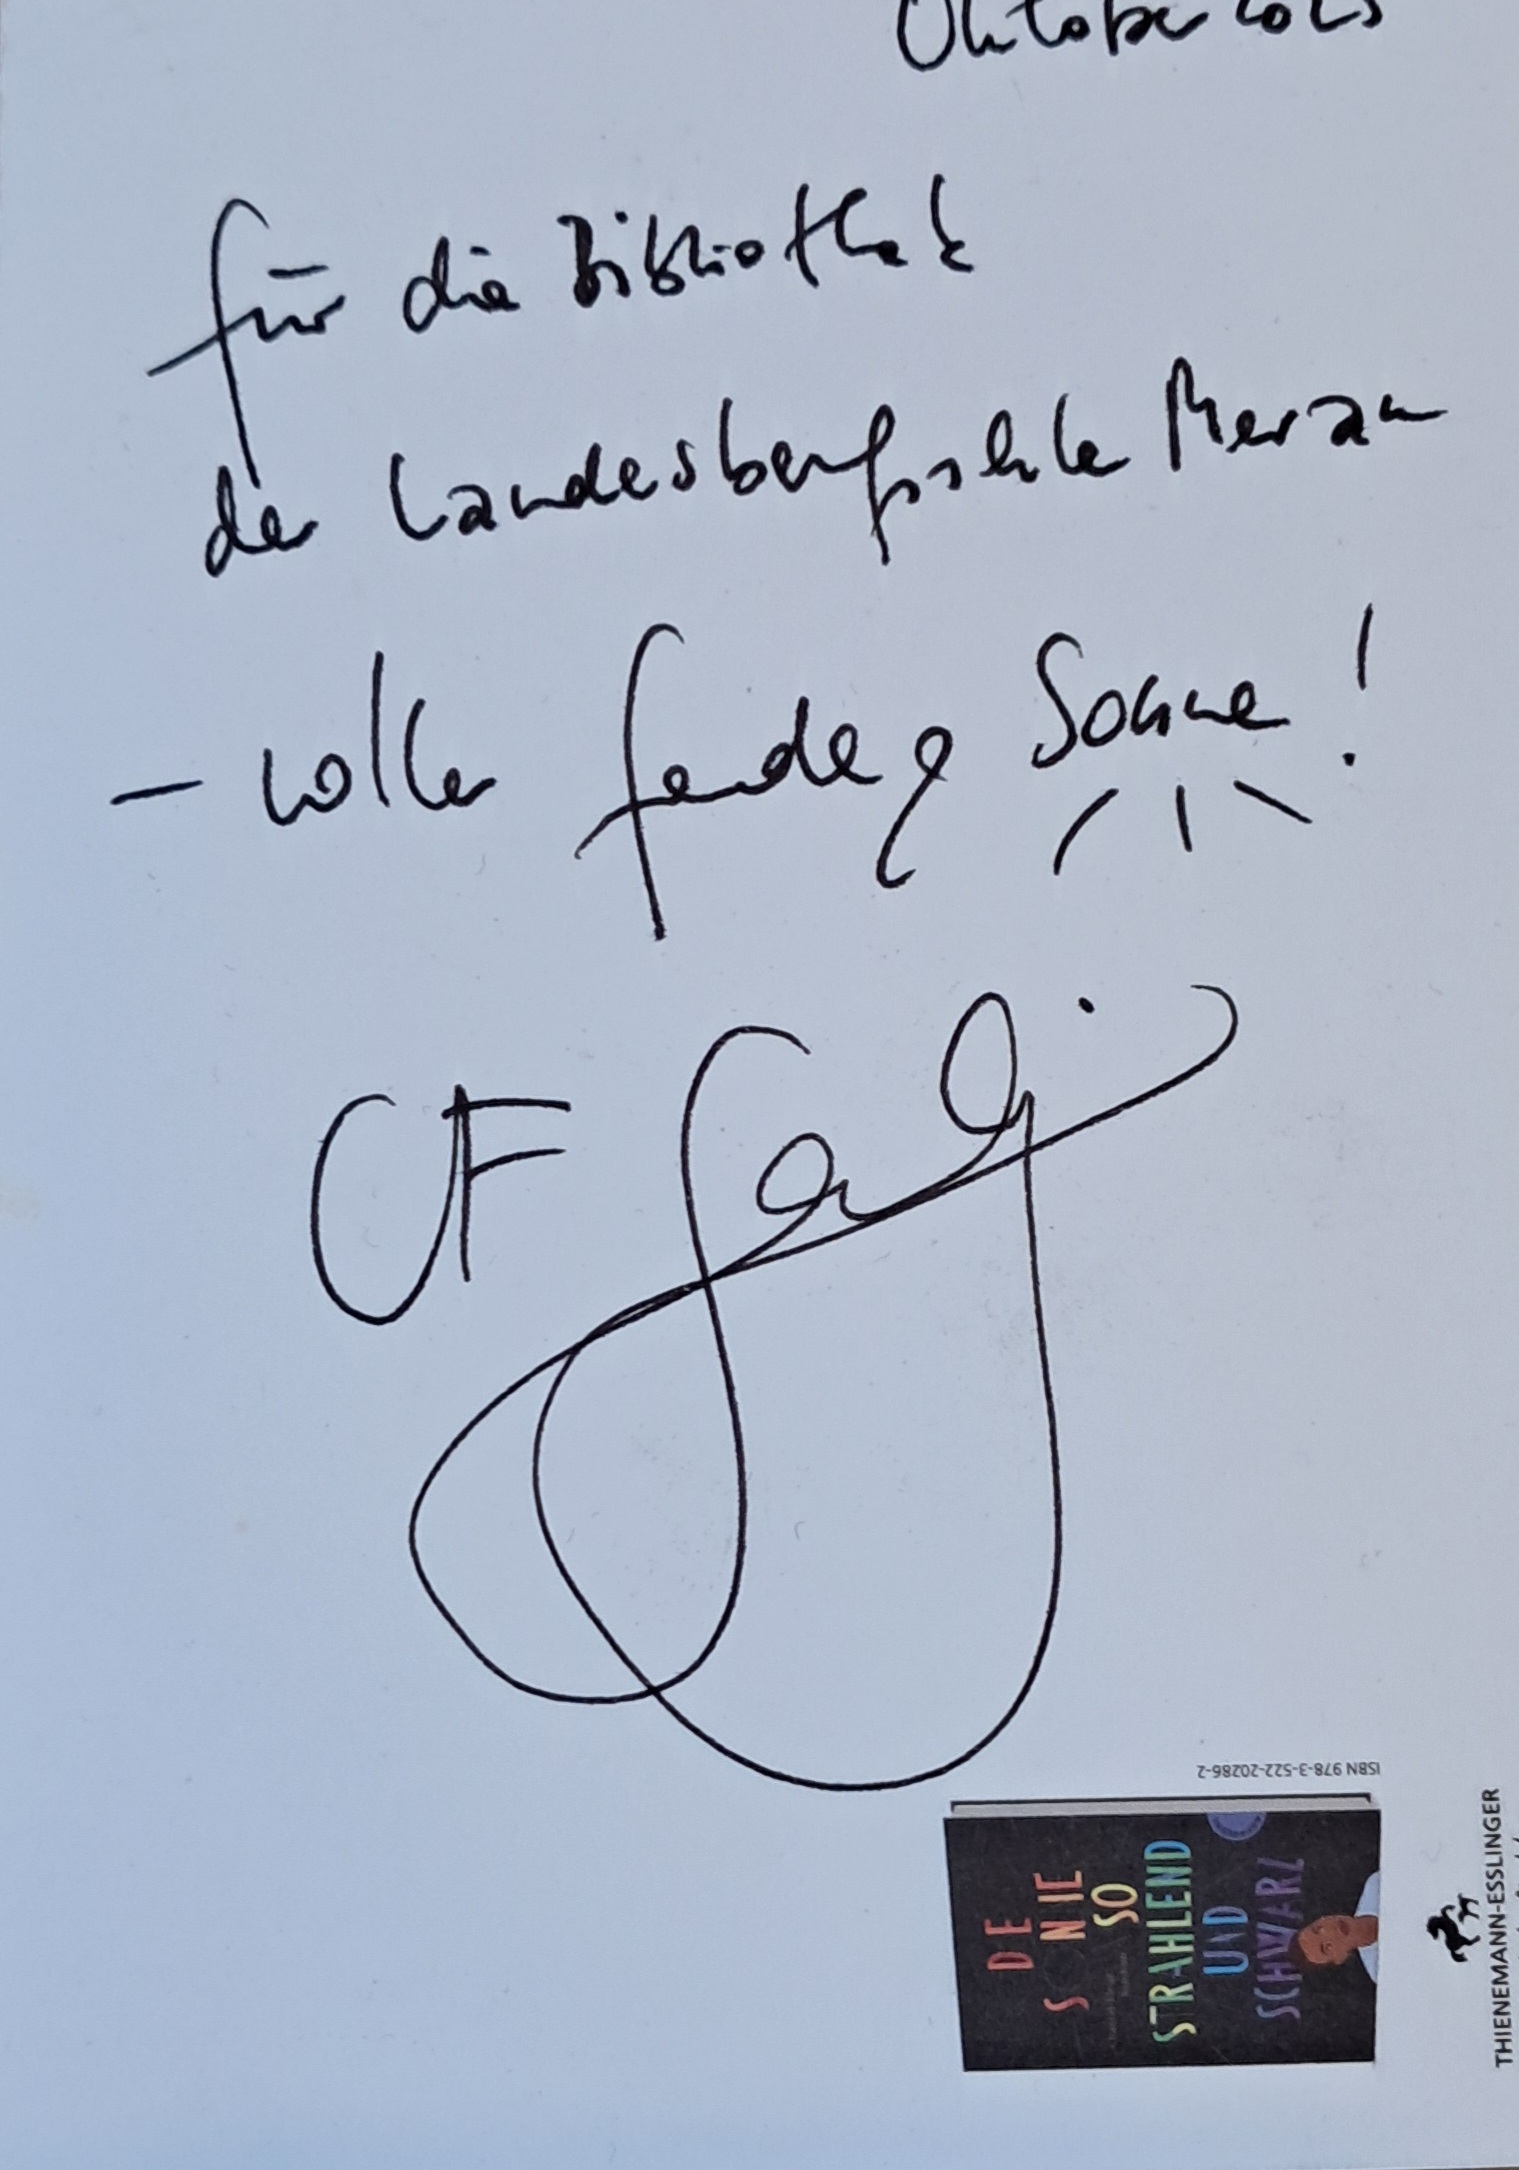 Oktober 2023
für die Bibliothek
der Landesberufsschule Meran
– voller Freude & Sonne!
CF
ISBN 978-3-522-20286-2
DIE
SONNE
SO
STRAHLEND
UND
SCHWARZ
THIENEMANN-ESSLINGER